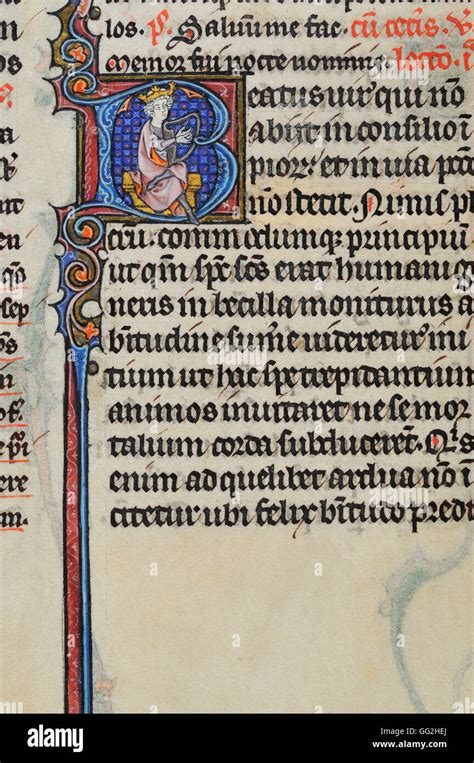 los. p. Saluūme fac. cū cetis. v.
memor fui nocte nominis. lectō. i
Beatus uir qui nō
abiit in consilio ī
pioꝝ. et in uia pcō
nō stetit. Nimis pl
crū. commodumq; principiū
ut qm̄ spc̄ sc̄s erat humani g
neris in becilla moniturus a
bītudine sume uideretur ini
tium ut hac spe trepidantium
animos inuitaret ne se mor
talium corda subduceret. Qs
enim ad quelibet ardua nō ī
citetur ubi felix bītudo predi
en
qō
sep
os
ere
m.
alamy
Image ID: GG2HEJ
www.alamy.com